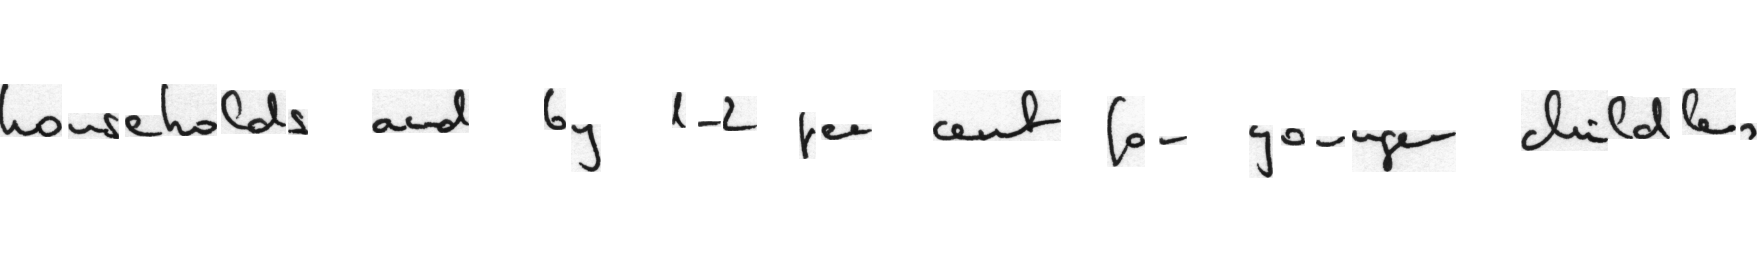 households and by 1-2 per cent for younger childless